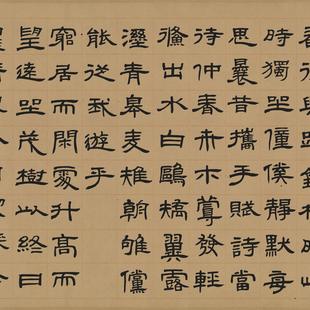 時獨坐僮僕靜默每
思曩昔攜手賦詩當
待仲春卉木蔓發輕
鯈出水白鷗矯翼露
溼青皋麥雉朝雊儻
能從我遊乎
窮居而閑處升高而
望遠坐茂樹以終日